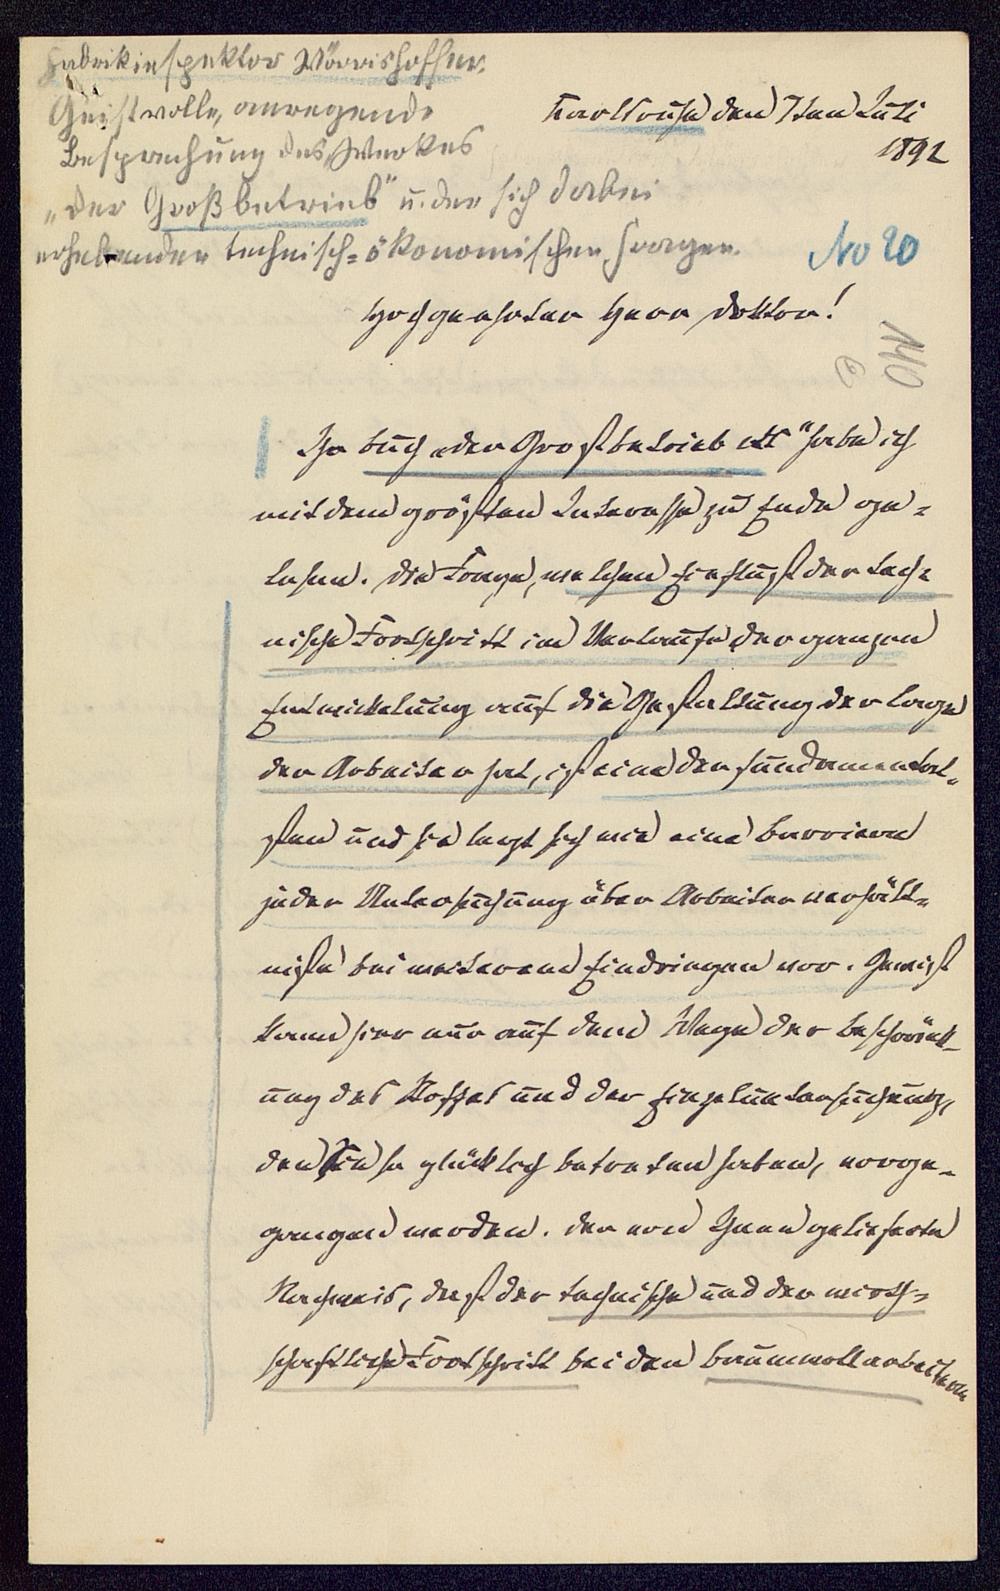 Fabrikinspektor Wörrishoffer.
Geistvolle, anregende
Besprechung des Werkes
„Der Großbetrieb" u. der sich dabei
erhebenden technisch-ökonomischen Fragen.
Karlsruhe den 7ten Juli
1892
No 20
140
Hochgeehrter Herr Doktor!
Ihr Buch „der Großbetrieb etc" habe ich
mit dem größten Interesse zu Ende ge-
lesen. Die Frage, welchen Einfluß der tech-
nische Fortschritt im Verlaufe der ganzen
Entwickelung auf die Gestaltung der Lage
der Arbeiter hat, ist eine der fundamental-
sten und sie legt sich wie eine Barriere
jeder Untersuchung über Arbeiterverhält-
nisse bei weiterem Eindringen vor. Gewiß
kann hier nur auf dem Wege der Beschränk-
ung des Stoffes und der Einzeluntersuchung,
den Sie so glücklich betreten haben, vorge-
gangen werden. Der von Ihnen gelieferte
Nachweis, daß der technische und der wirth-
schaftliche Fortschritt bei den Baumwollarbeitern